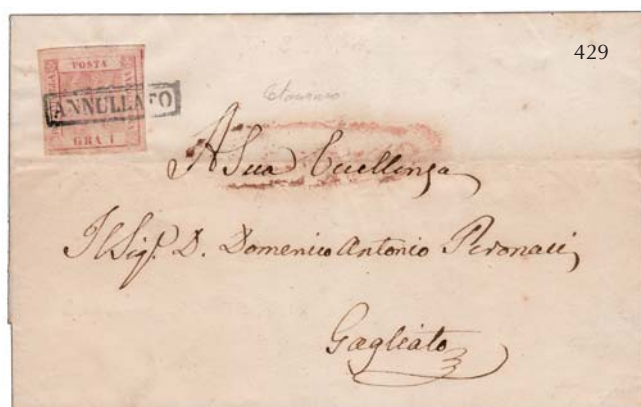 429
POSTA
ANNULLATO
GRA 1
A Sua Eccellenza
Il Sig.r D. Domenico Antonio Peronaci
Gagliato